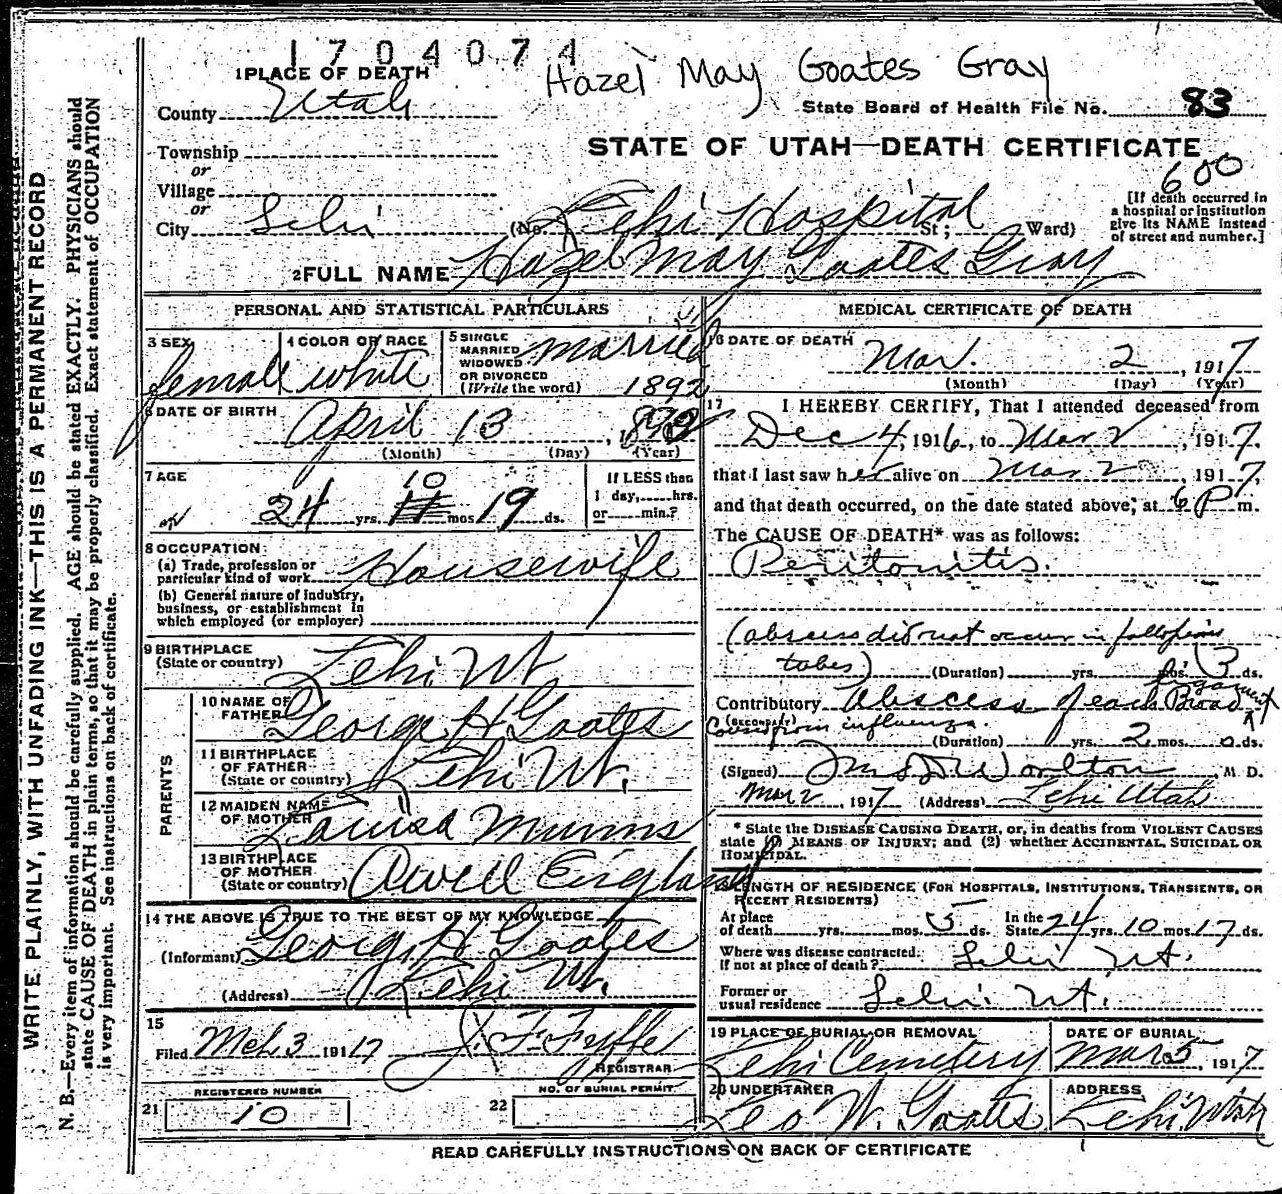 1704074
Hazel May Goates Gray
1 PLACE OF DEATH
County Utah
State Board of Health File No. 83
Township
or
Village
or
City Lehi
STATE OF UTAH—DEATH CERTIFICATE
600
(No. Lehi Hospital St; Ward)
[If death occurred in
a hospital or institution
give its NAME instead
of street and number.]
2 FULL NAME Hazel May Goates Gray
PERSONAL AND STATISTICAL PARTICULARS
3 SEX female
4 COLOR OR RACE white
5 SINGLE
MARRIED
WIDOWED
OR DIVORCED
(Write the word) married
1892
6 DATE OF BIRTH April 13, 1892
(Month) (Day) (Year)
7 AGE
10
24 yrs. 11 mos. 19 ds.
If LESS than
1 day, hrs.
or min.?
8 OCCUPATION
(a) Trade, profession or
particular kind of work Housewife
(b) General nature of industry,
business, or establishment in
which employed (or employer)
9 BIRTHPLACE
(State or country) Lehi Ut
PARENTS
10 NAME OF
FATHER George H Goates
11 BIRTHPLACE
OF FATHER
(State or country) Lehi Ut.
12 MAIDEN NAME
OF MOTHER Louisa Munns
13 BIRTHPLACE
OF MOTHER
(State or country) Orwell England
14 THE ABOVE IS TRUE TO THE BEST OF MY KNOWLEDGE
(Informant) George H Goates
(Address) Lehi Ut.
15
Filed Mch 3 1917 J. F. Fyffe
REGISTRAR
REGISTERED NUMBER
21 10
NO. OF BURIAL PERMIT
22
MEDICAL CERTIFICATE OF DEATH
16 DATE OF DEATH
Mar. 2, 1917
(Month) (Day) (Year)
17 I HEREBY CERTIFY, That I attended deceased from
Dec 4, 1916, to Mar 2, 1917.
that I last saw her alive on Mar 2, 1917,
and that death occurred, on the date stated above, at 6 P m.
The CAUSE OF DEATH* was as follows:
Peritonitis.
(abscess did not occur in fallopian
tubes) (Duration) yrs. mos. 3 ds.
Contributory Abscess of each Broad ligament
(SECONDARY) from influenza.
(Duration) yrs. 2 mos. 0 ds.
(Signed) Worlton, M D.
Mar 2, 1917 (Address) Lehi Utah
* State the DISEASE CAUSING DEATH, or, in deaths from VIOLENT CAUSES
state (1) MEANS OF INJURY; and (2) whether ACCIDENTAL, SUICIDAL OR
HOMICIDAL.
18 LENGTH OF RESIDENCE (FOR HOSPITALS, INSTITUTIONS, TRANSIENTS, OR
RECENT RESIDENTS)
At place
of death yrs. mos. 5 ds. In the
State 24 yrs. 10 mos. 17 ds.
Where was disease contracted.
If not at place of death? Lehi Ut.
Former or
usual residence Lehi Ut.
19 PLACE OF BURIAL OR REMOVAL
Lehi Cemetery
DATE OF BURIAL
Mar 5, 1917
20 UNDERTAKER
Leo W. Goates
ADDRESS
Lehi, Utah
READ CAREFULLY INSTRUCTIONS ON BACK OF CERTIFICATE
WRITE PLAINLY, WITH UNFADING INK—THIS IS A PERMANENT RECORD
N. B.—Every item of information should be carefully supplied. AGE should be stated EXACTLY. PHYSICIANS should
state CAUSE OF DEATH in plain terms, so that it may be properly classified. Exact statement of OCCUPATION
is very important. See instructions on back of certificate.